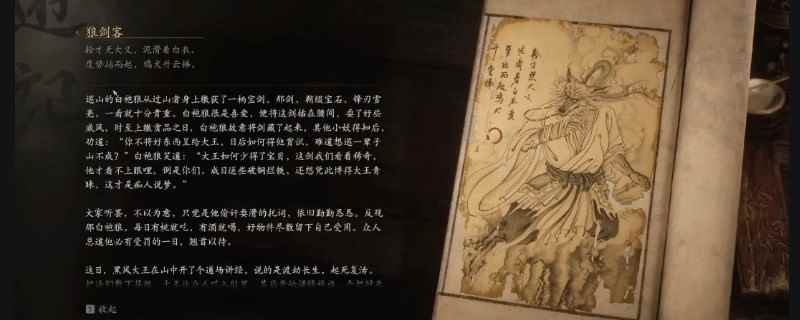 狼剑客
轻才死大义，泥滑着白衣。
度势均而起，鸣犬升云梯。
巡山的白袍狼从过山者身上缴获了一柄宝剑，那剑，鞘缀宝石，锋刃雪
亮，一看就十分贵重，白袍狼很是喜爱，便将这剑佩在腰间，耍了好些
威风。时至上缴贡品之日，白袍狼故意将剑藏了起来，其他小妖得知后，
劝道：“你不将好东西呈给大王，日后如何得他赏识，难道想巡一辈子
山不成？”白袍狼笑道：“大王如何少得了宝贝，这剑我们看着稀奇，
他才看不上眼哩。倒是你们，成日送些破铜烂铁，还想凭此博得大王青
睐，这才是痴人说梦。”
大家听罢，不以为意，只觉是他偷奸耍滑的托词，依旧勤勤恳恳。反观
那白袍狼，每日有桃就吃，有酒就喝，好物件尽数留下自己受用。众人
总道他必有受罚的一日，翘首以待。
这日，黑风大王在山中开了个道场讲经，说的是波劫长生，起死复活。
收起